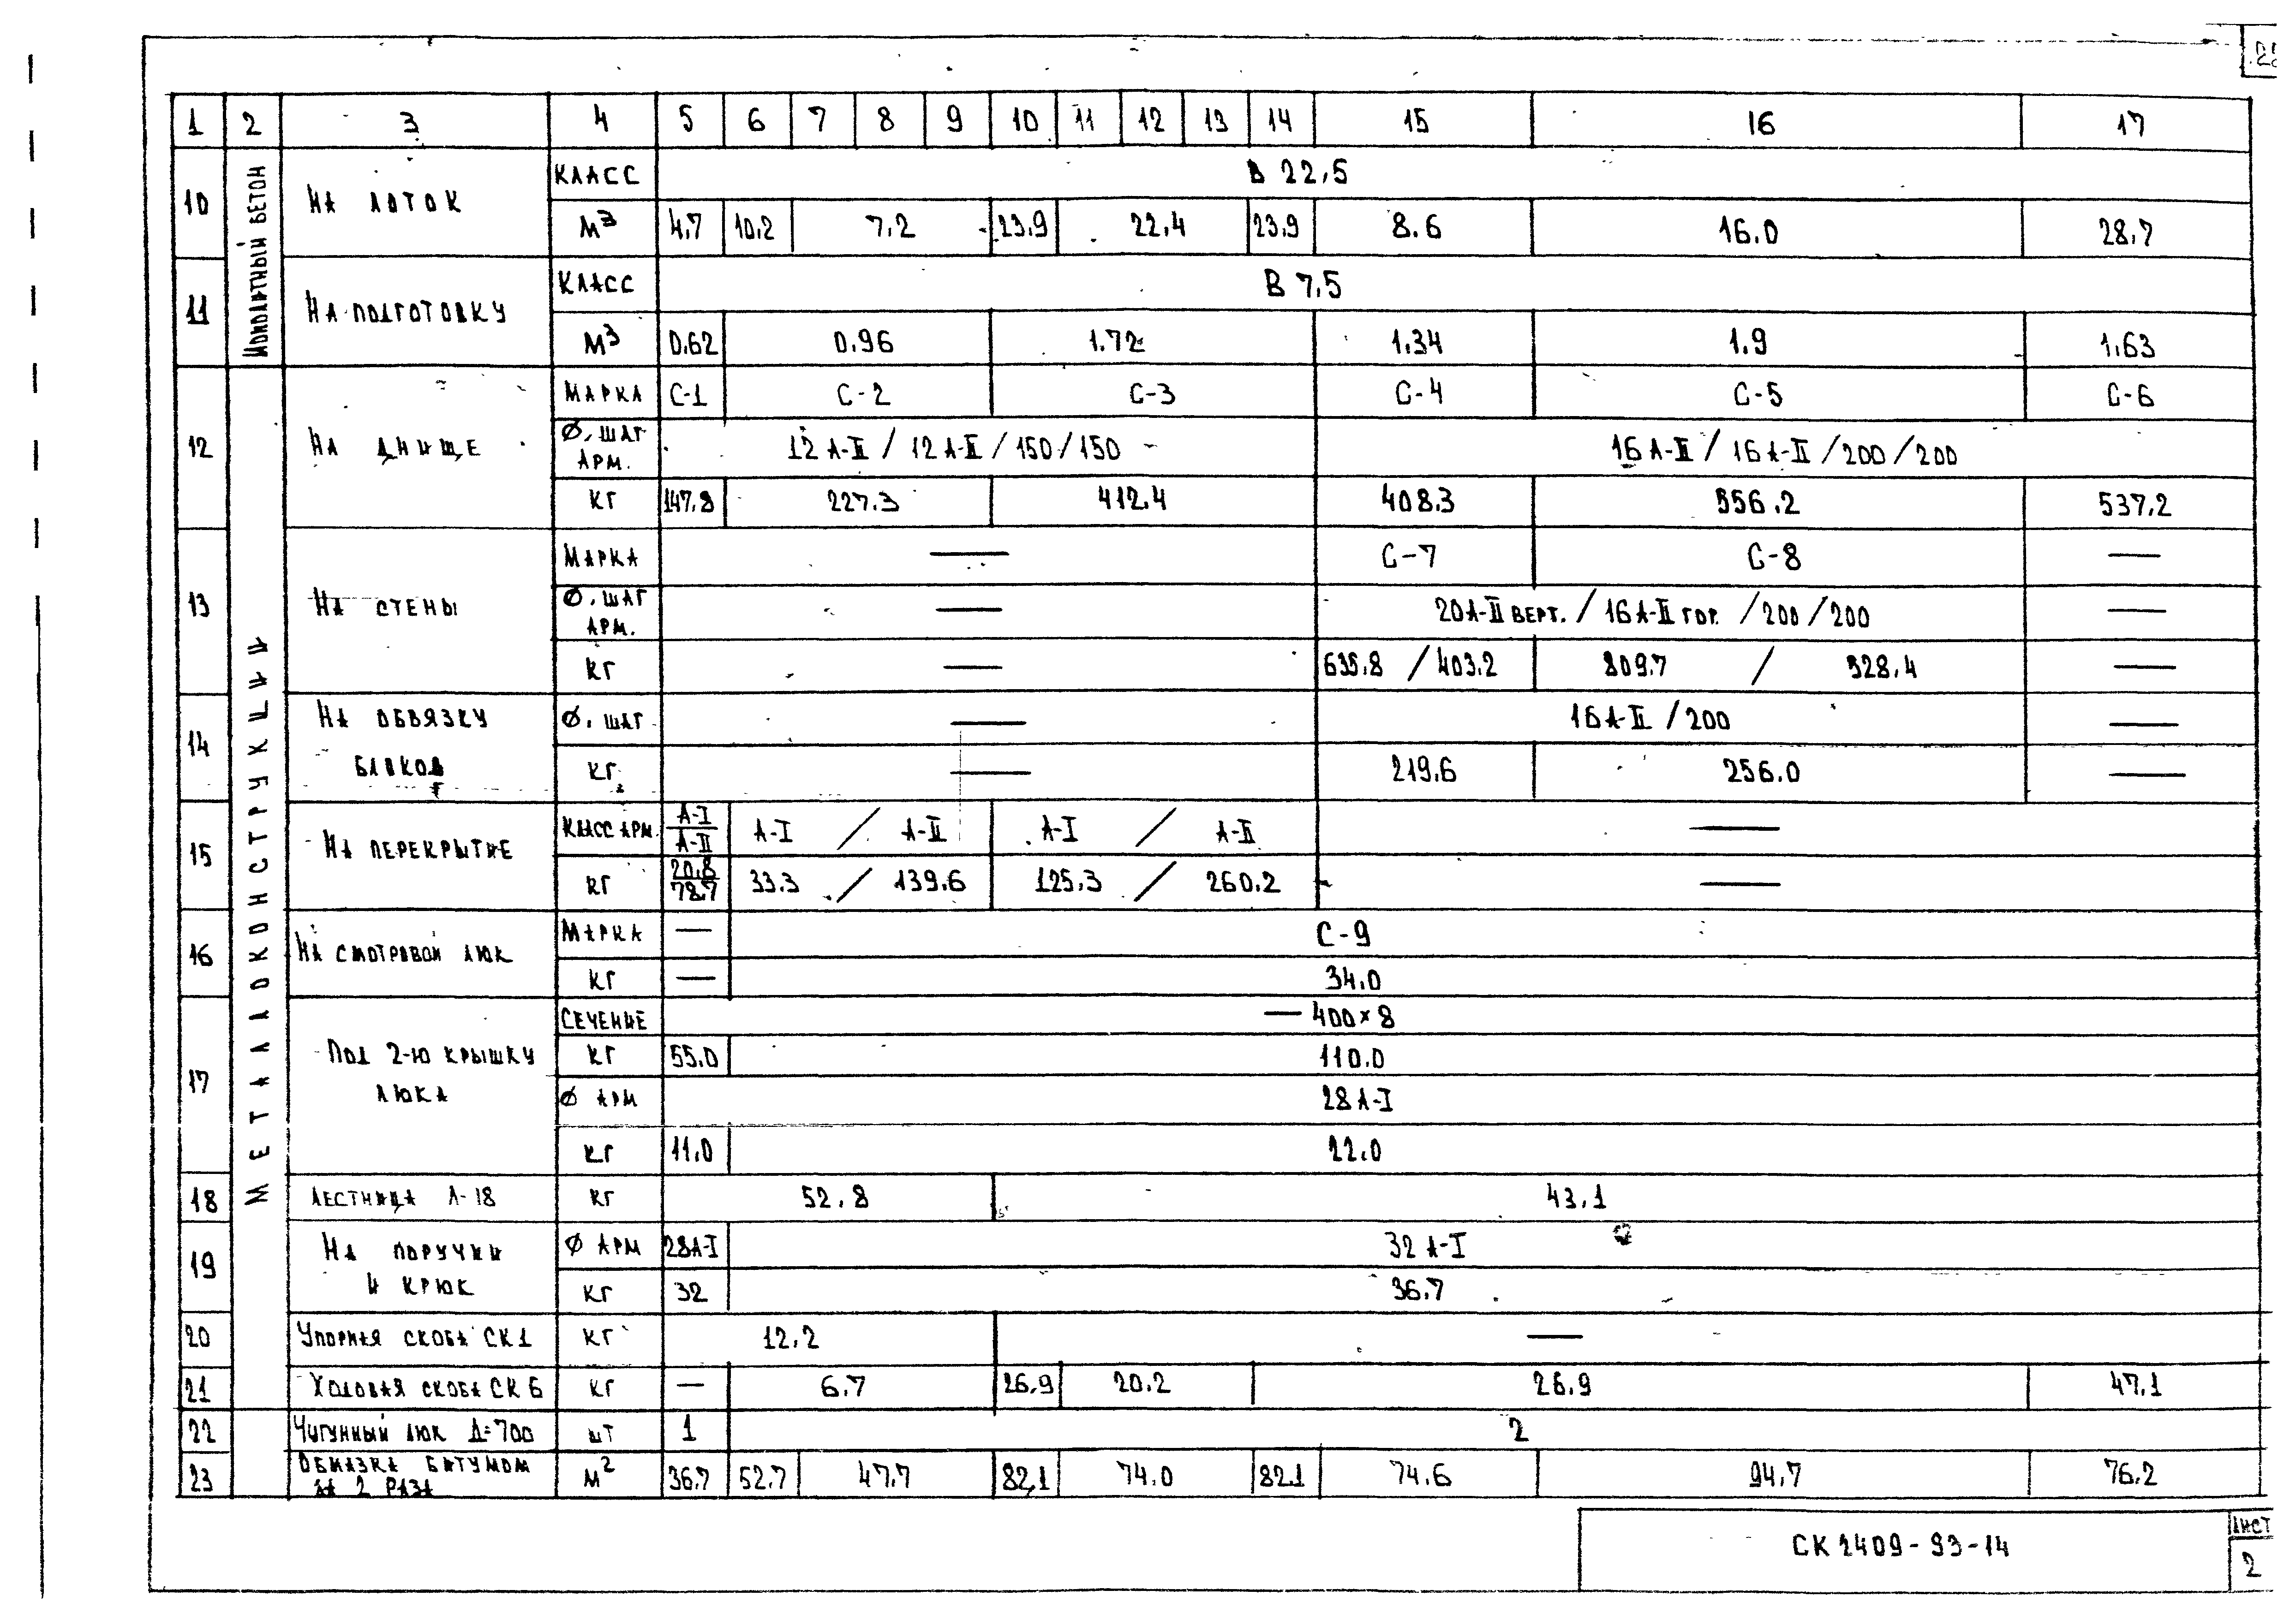 1 2 3 4 5 6 7 8 9 10 11 12 13 14 15 16 17
МОНОЛИТНЫЙ БЕТОН
10 НА ЛОТОК КЛАСС В 22,5
М3 4,7 10,2 7,2 23,9 22,4 23,9 8.6 16.0 28,7
11 НА ПОДГОТОВКУ КЛАСС В 7,5
М3 0,62 0,96 1.72 1.34 1.9 1,63
МЕТАЛЛОКОНСТРУКЦИИ
12 НА ДНИЩЕ МАРКА С-1 С-2 С-3 С-4 С-5 С-6
Ø, ШАГ АРМ. 12 А-II / 12 А-II / 150 / 150 16 А-II / 16 А-II / 200 / 200
КГ 147,8 227,3 412,4 408,3 556,2 537,2
13 НА СТЕНЫ МАРКА — С-7 С-8 —
Ø, ШАГ АРМ. — 20А-II ВЕРТ. / 16 А-II ГОР. / 200 / 200 —
КГ — 635,8 / 403,2 809,7 / 528,4 —
14 НА ОБВЯЗКУ Ø, ШАГ — 16 А-II / 200 —
БЛОКОВ КГ — 219,6 256,0 —
15 НА ПЕРЕКРЫТИЕ КЛАСС АРМ. А-I/А-II А-I / А-II А-I / А-II —
КГ 20,8/78,7 33.3 / 139.6 125,3 / 260,2 —
16 НА СМОТРОВОЙ ЛЮК МАРКА — С-9
КГ — 34,0
17 ПОД 2-Ю КРЫШКУ СЕЧЕНИЕ — 400×8
ЛЮКА КГ 55.0 110.0
Ø АРМ 28 А-I
КГ 11,0 22.0
18 ЛЕСТНИЦА Л-18 КГ 52,8 43,1
19 НА ПОРУЧНИ Ø АРМ 28А-I 32 А-I
И КРЮК КГ 32 36,7
20 УПОРНАЯ СКОБА СК1 КГ 12,2 —
21 ХОДОВАЯ СКОБА СК 6 КГ — 6.7 26,9 20.2 26.9 47.1
22 ЧУГУННЫЙ ЛЮК Д=700 ШТ 1 2
23 ОБМАЗКА БИТУМОМ М2 36,7 52,7 47,7 82,1 74.0 82.1 74.6 94.7 76.2
ЗА 2 РАЗА
СК 2409-93-14
ЛИСТ
2